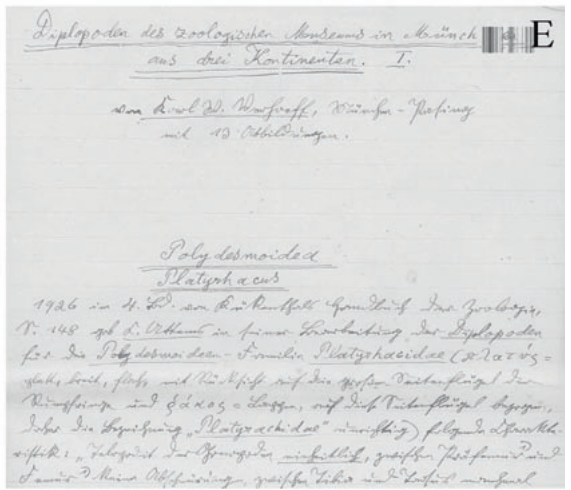 Diplopoden des zoologischen Museums in Münch E
aus drei Kontinenten. I.
von Karl W. Verhoeff, München - Pasing
mit 13 Abbildungen.
Polydesmoidea
Platyrhacus
1926 in 4. Bd. von Kükenthals Handbuch der Zoologie,
S. 148 gab C. Attems in seiner Bearbeitung der Diplopoden
für die Polydesmoideen-Familie Platyrhacidae (πλατύς =
platt, breit, flach, mit Rücksicht auf die großen Seitenflügel der
Rumpfringe und ῥάκος = Lappen, auf diese Seitenflügel bezogen,
daher die Bezeichnung „Platyrachidae" unrichtig) folgende Charakte-
ristik: „Telopodit der Gonopoden einheitlich, zwischen Präfemur und
Femur keine Abschnürung, zwischen Tibia und Tarsus manchmal